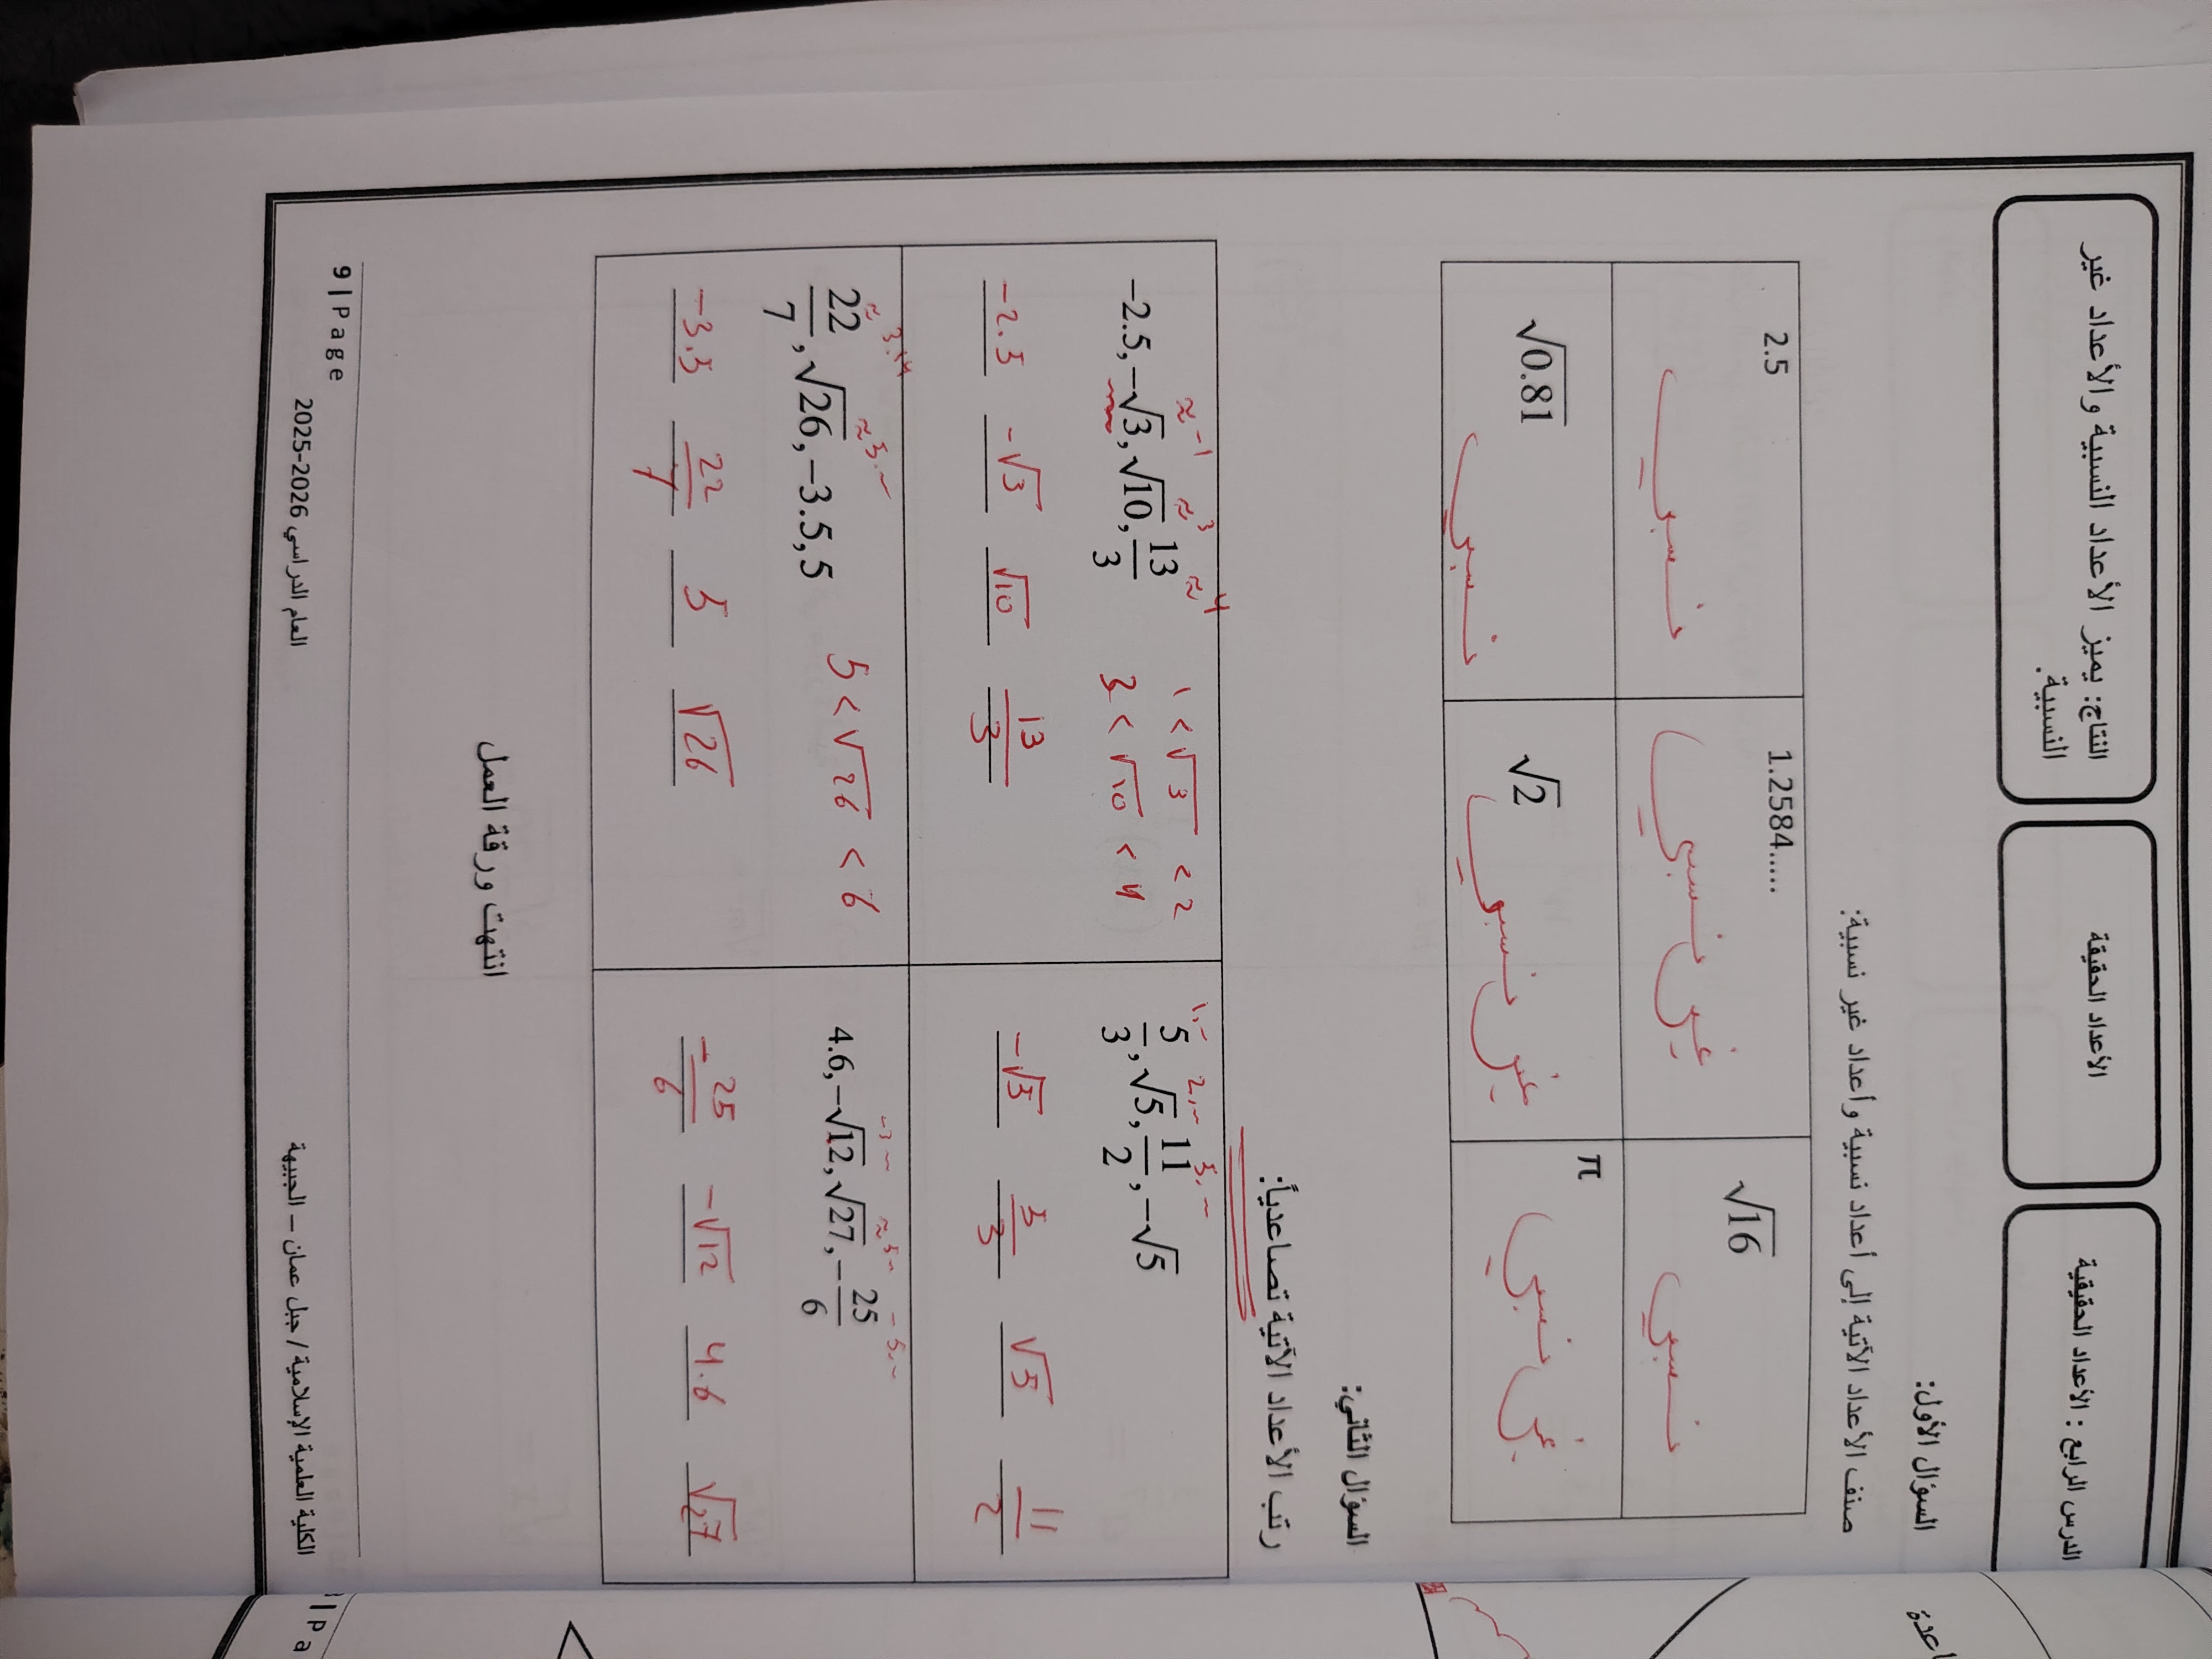 الدرس الرابع : الأعداد الحقيقية
الأعداد الحقيقة
النتاج: يميز الأعداد النسبية والأعداد غير
النسبية.
السؤال الأول:
صنف الأعداد الآتية إلى أعداد نسبية وأعداد غير نسبية:
2.5 1.2584..... √16
نسبي غير نسبي نسبي
√0.81 √2 π
نسبي غير نسبي غير نسبي
السؤال الثاني:
رتب الأعداد الآتية تصاعدياً:
≈ -1 ≈ 3 ≈ 4
-2.5, -√3, √10, 13/3
1 < √3 < 2
3 < √10 < 4
-2.5 -√3 √10 13/3
1.~ 2.~ 5.~
5/3, √5, 11/2, -√5
-√5 5/3 √5 11/2
≈ 3.14 ≈ 5.~
22/7, √26, -3.5, 5
5 < √26 < 6
-3.5 22/7 5 √26
-3~ ≈ 5~
4.6, -√12, √27, -25/6
-25/6 -√12 4.6 √27
انتهت ورقة العمل
9 | Page
الكلية العلمية الإسلامية / جبل عمان – الجبيهة
العام الدراسي 2025-2026
| Pa